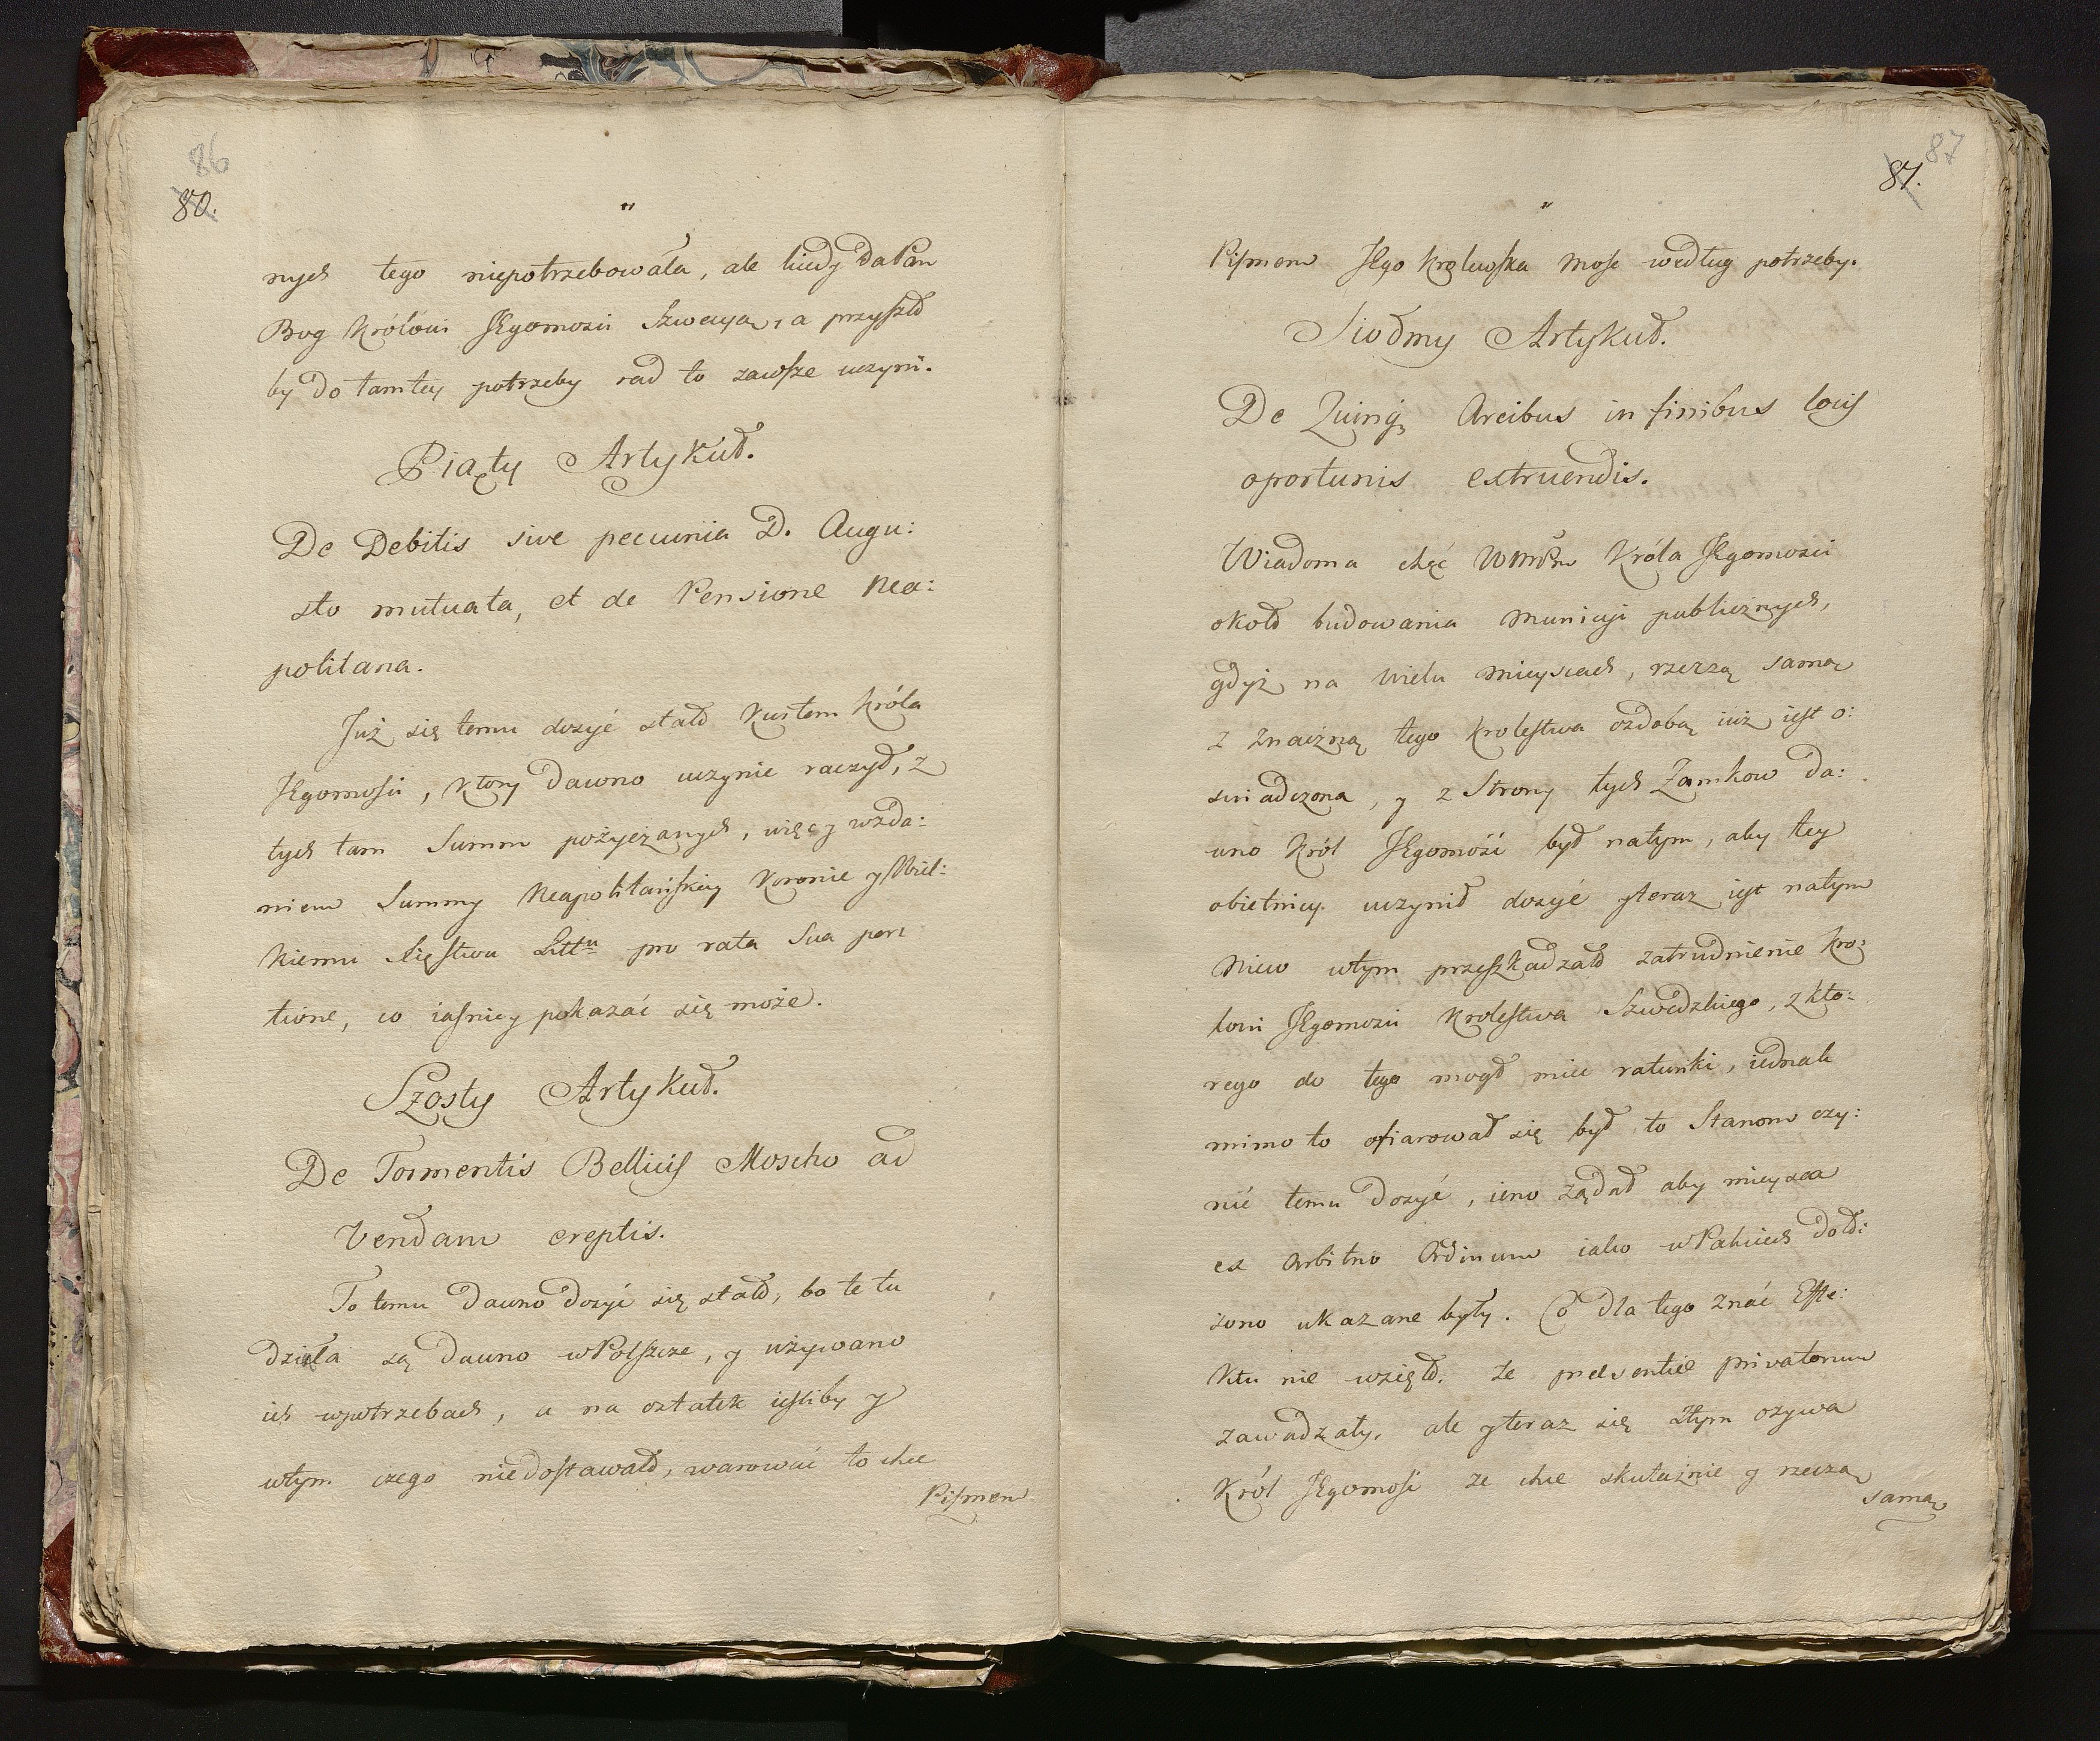 86
80.
nych tego niepotrzebowała, ale kiedy da Pan
Bog Królowi JEgomosci Szwecyą, a przyszło
by do tamtey potrzeby rad to zawsze uczyni.
Piąty Artykuł.
De Debitis sive pecunia D. Augu:
sto mutuata, et de Pensione Nea:
politana.
Już się temu dosyć stało Kustem Króla
JEgomosci, Ktory dawno uczynic raczył, z
tych tam Summ pożyczanych, więc y wzda:
niem Summy Neapolitańskiey Koronie y Wiel:
kiemu Xięstwu Litt̃u pro rata sua por
tione, co iasniey pokazać się może.
Szosty Artykuł.
De Tormentis Bellicis Moscho ad
Vendam ereptis.
To temu dawno dosyć się stało, bo te tu
działa są dawno w Polszcze, y używano
ich w potrzebach, a na ostatek iesliby y
wtym czego niedostawało, warować to chce
Pismem
87
81.
Pismem JEgo Krolewska Mosc według potrzeby.
Siodmy Artykuł.
De Quinq; Arcibus in finibus locis
oportunis extruendis.
Wiadoma chęć Króla JEgomosci
około budowania Municyi publicznych,
gdyż na wielu mieyscach, rzeczą samą
z znaczną tego Krolestwa ozdobą iuż iest o:
swiadczona, y z Strony tych Zamkow da:
wno Król JEgomość był natym, aby tey
obietnicy uczynił dosyć y teraz iest natym
Niew wtym przeszkadzało zatrudnienie Kro:
lowi JEgomosci Krolestwa Szwedzkiego, z kto:
rego do tego mogł miec ratunki, iednak
mimo to ofiarował się był to Stanom czy:
nić temu dosyć, ieno żądał aby mieysca
ex Arbitrio Ordinum iako w Paktach doło:
żono ukazane były. Co dla tego znać Effe:
ktu nie wzięło. że praesentiae privatorum
zawadzały, ale y teraz się ztym ozywa
Król JEgomość że chce skutecznie y rzeczą
samą